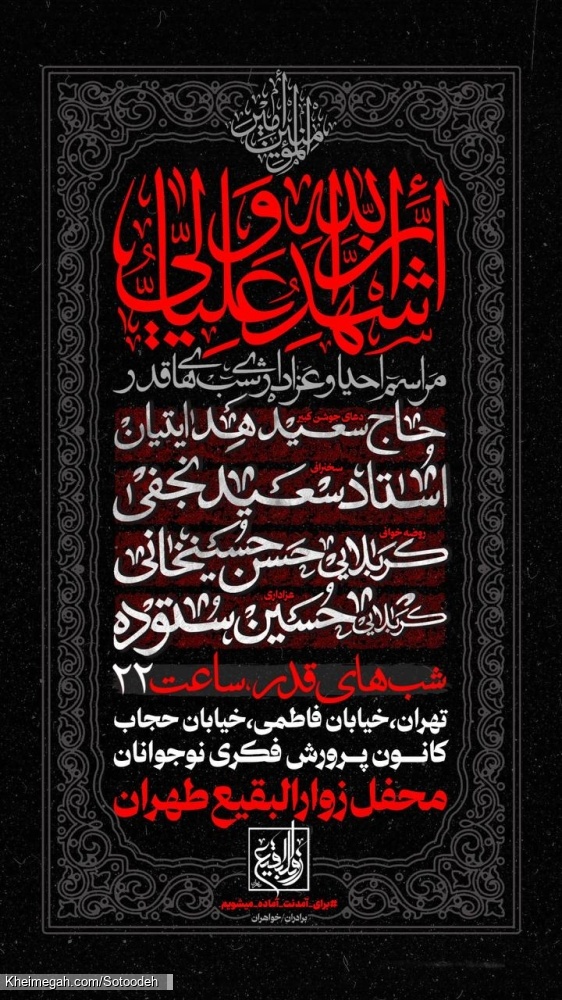 امیرالمؤمنین
أشهد أن علیا ولي الله
مراسم احیا و عزاداری شب‌های قدر
دعای جوشن کبیر
حاج سعید هدایتیان
سخنرانی
استاد سعید نجفی
روضه خوانی
کربلایی حسن حسینخانی
عزاداری
کربلایی حسین ستوده
شب‌های قدر، ساعت ۲۲
تهران، خیابان فاطمی، خیابان حجاب
کانون پرورش فکری نوجوانان
محفل زوارالبقیع طهران
زوارالبقیع
#برای_آمدنت_آماده_میشویم
برادران/خواهران
Kheimegah.com/Sotoodeh